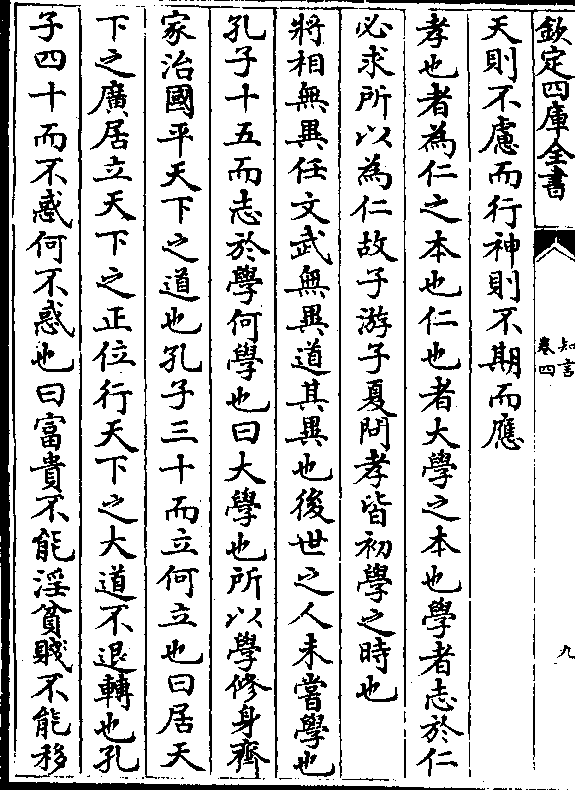 欽定四庫全書
知言
卷四
九
天則不慮而行神則不期而應
孝也者為仁之本也仁也者大學之本也學者志於仁
必求所以為仁故子游子夏問孝皆初學之時也
將相無異任文武無異道其異也後世之人未嘗學也
孔子十五而志於學何學也曰大學也所以學修身齊
家治國平天下之道也孔子三十而立何立也曰居天
下之廣居立天下之正位行天下之大道不退轉也孔
子四十而不惑何不惑也曰富貴不能淫貧賤不能移